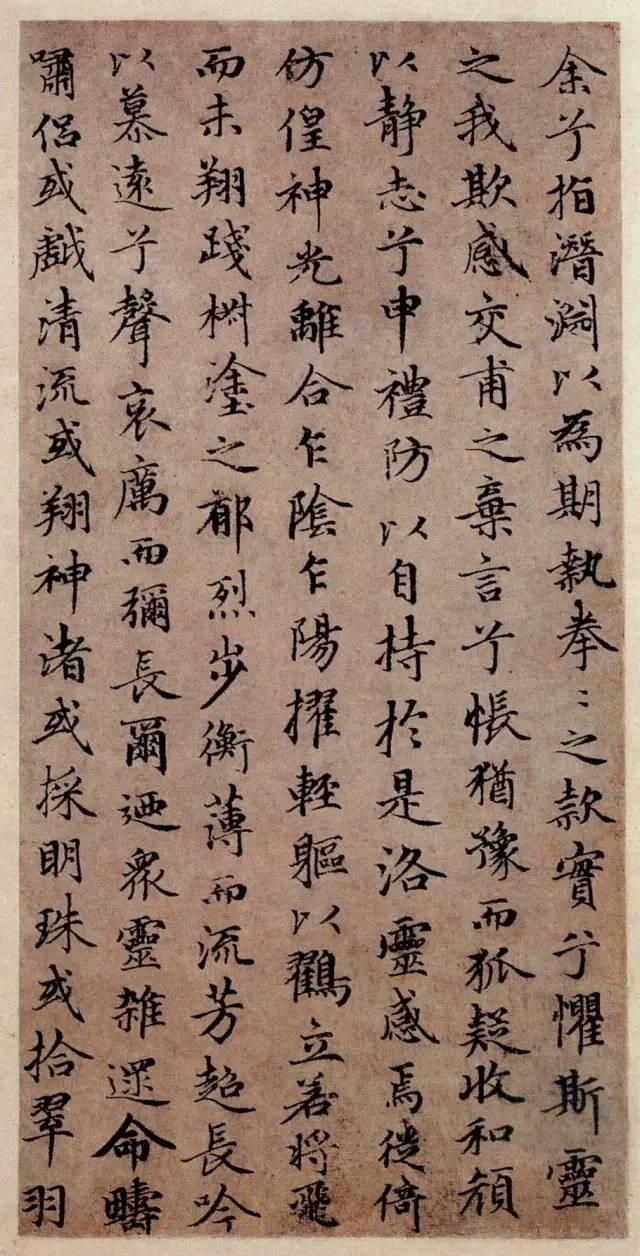 余兮指潛淵以為期執拳〻之款實兮懼斯靈
之我欺感交甫之棄言兮悵猶豫而狐疑收和顏
以静志兮申禮防以自持於是洛靈感焉徙倚
仿偟神光離合乍陰乍陽擢輕軀以鸖立若将飛
而未翔踐椒塗之郁烈步衡薄而流芳超長吟
以慕遠兮聲哀厲而彌長爾迺衆靈雜遝命疇
嘯侣或戲清流或翔神渚或採明珠或拾翠羽